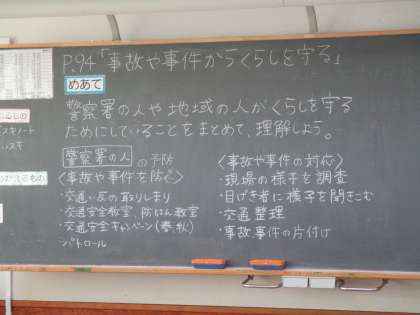 P.94「事故や事件からくらしを守る」
めあて
警察署の人や地域の人がくらしを守る
ためにしていることをまとめて、理解しよう。
警察署の人 の予防
〈事故や事件を防ぐ〉
・交通い反の取りしまり
・交通安全教室、防はん教室
・交通安全キャンペーン(春、秋)
・パトロール
〈事故や事件の対応〉
・現場の様子を調査
・目げき者に様子を聞きこむ
・交通整理
・事故事件の片付け